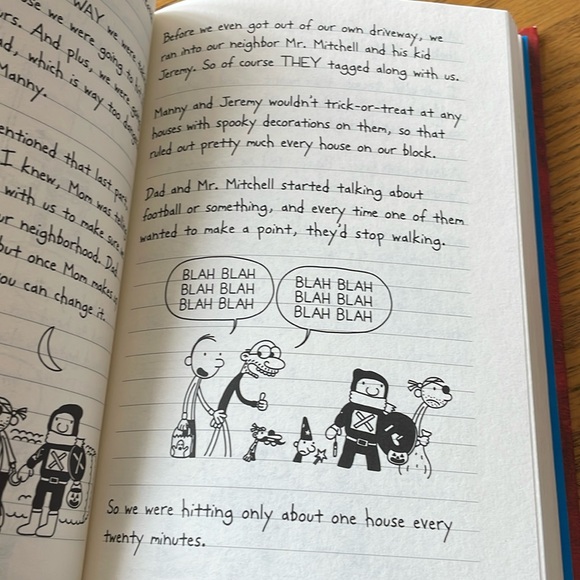 WAY we were
se we were going to
rs. And plus, we were
ad, which is way too
Manny.
entioned that last part
I knew, Mom was
with us to make sure
ur neighborhood. Dad
but once Mom makes
you can change it.
Before we even got out of our own driveway, we
ran into our neighbor Mr. Mitchell and his kid
Jeremy. So of course THEY tagged along with us.
Manny and Jeremy wouldn't trick-or-treat at any
houses with spooky decorations on them, so that
ruled out pretty much every house on our block.
Dad and Mr. Mitchell started talking about
football or something, and every time one of them
wanted to make a point, they'd stop walking.
BLAH BLAH
BLAH BLAH
BLAH BLAH
BLAH BLAH
BLAH BLAH
BLAH BLAH
So we were hitting only about one house every
twenty minutes.